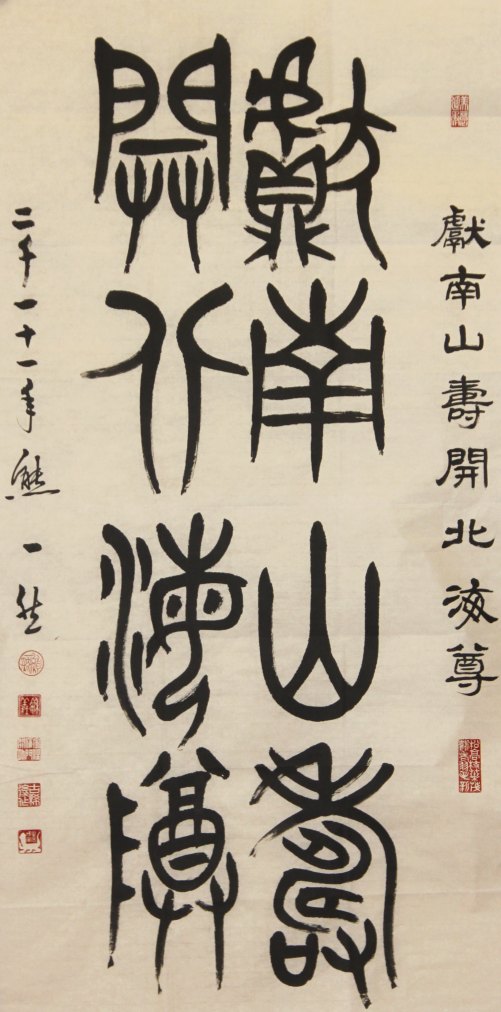 獻南山壽開北海尊
獻南山壽
開北海尊
二千一十一年熊一然